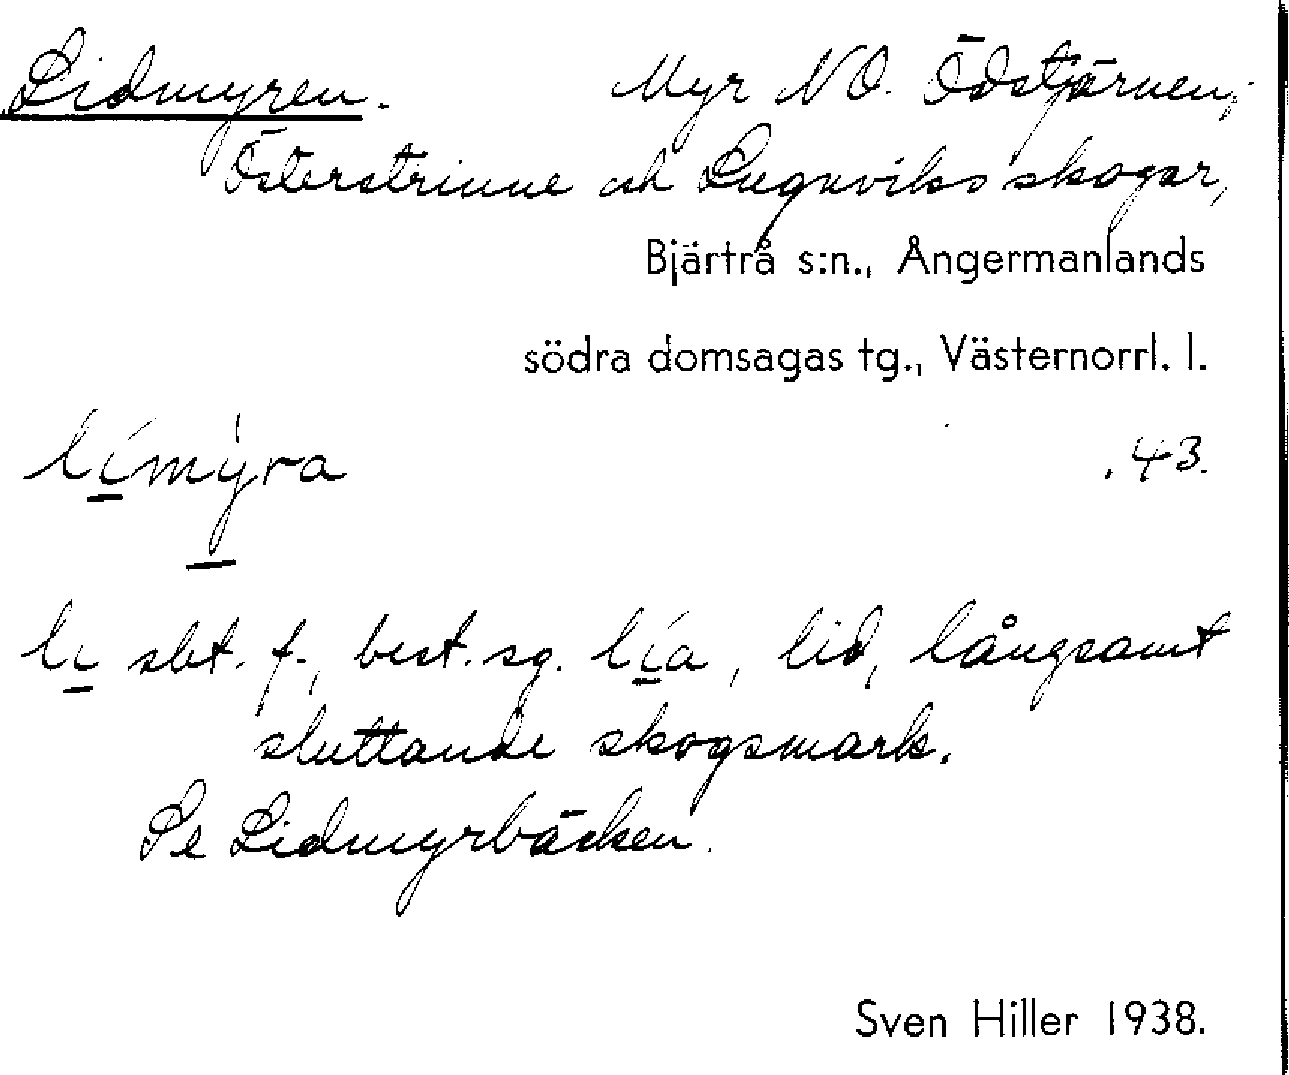 Lidmyren. Myr NO. Ödstjärnen,
Österstrinne och Lugnviks skogar,
Bjärtrå s:n., Ångermanlands
södra domsagas tg., Västernorrl. l.
límỳra .43.
li sbt. f., best. sg. lía, lid, långsamt
sluttande skogsmark.
Se Lidmyrbäcken.
Sven Hiller 1938.